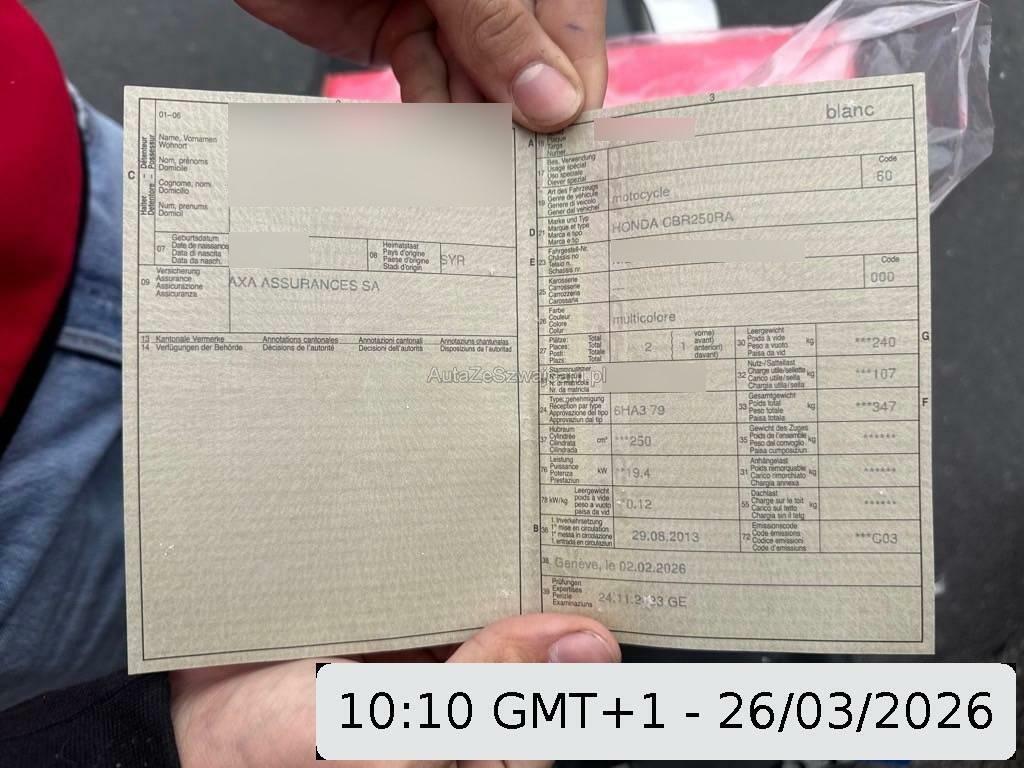 01-06
Name, Vornamen
Wohnort
Nom, prénoms
Domicile
Cognome, nomi
Domicilio
Num, prenums
Domicil
C
Halter – Détenteur
Detentore – Possessur
07 Geburtsdatum
Date de naissance
Data di nascita
Data da nasch.
08 Heimatstaat
Pays d'origine
Paese d'origine
Stadi d'origin
SYR
09 Versicherung
Assurance
Assicurazione
Assicuranza
AXA ASSURANCES SA
13 Kantonale Vermerke Annotations cantonales Annotazioni cantonali Annotaziuns chantunalas
14 Verfügungen der Behörde Décisions de l'autorité Decisioni dell'autorità Disposiziuns da l'autoritad
AutaZeSzwajcarii.pl
3
A
blanc
17 Bes. Verwendung
Usage spécial
Uso speciale
Diever spezial
Code
60
19 Art des Fahrzeugs
Genre de véhicule
Genere di veicolo
Gener dal vehichel
motocycle
D 21 Marke und Typ
Marque et type
Marca e tipo
Marca e tip
HONDA CBR250RA
E 23 Fahrgestell-Nr.
Châssis no
Telaio n.
Schassis nr.
25 Karosserie
Carrosserie
Carrozzeria
Carossaria
Code
000
26 Farbe
Couleur
Colore
Colur
multicolore
27 Plätze: Total
Places: Total
Posti: Totale
Plazs: Total
2 ( 1 vorne)
avant)
anteriori)
davant)
30 Leergewicht
Poids à vide
Peso a vuoto
Paisa da vid
kg ***240 G
Stammnummer
N. di matricola
Nr. da matricla
32 Nutz-/Sattellast
Charge utile/sellette
Carico utile/sella
Chargia utila/sella
kg ***107
24 Typengenehmigung
Réception par type
Approvazione del tipo
Approvaziun dal tip
6HA3 79
33 Gesamtgewicht
Poids total
Peso totale
Paisa totala
kg ***347 F
37 Hubraum
Cylindrée
Cilindrata
Cilindrada
cm³ ***250
35 Gewicht des Zuges
Poids de l'ensemble
Peso del convoglio
Paisa cumposiziun
kg ******
76 Leistung
Puissance
Potenza
Prestaziun
kW **19.4
31 Anhängelast
Poids remorquable
Carico rimorchiato
Chargia annexa
kg ******
78 kW/kg Leergewicht
poids à vide
peso a vuoto
paisa da vid
*0.12
55 Dachlast
Charge sur le toit
Carico sul tetto
Chargia sin il tetg
kg ******
B 36 1. Inverkehrsetzung
1re mise en circulation
1a messa in circolazione
1. entrada en circulaziun
29.08.2013
72 Emissionscode
Code émissions
Codice emissioni
Code d'emissiuns
***G03
38 Genève, le 02.02.2026
39 Prüfungen
Expertises
Perizie
Examinaziuns
GE
10:10 GMT+1 - 26/03/2026